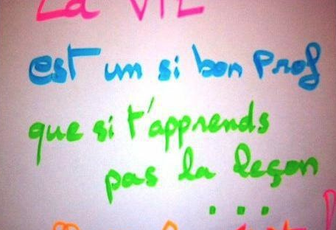 La VIE
est un si bon Prof
que si t'apprends
pas la leçon
...